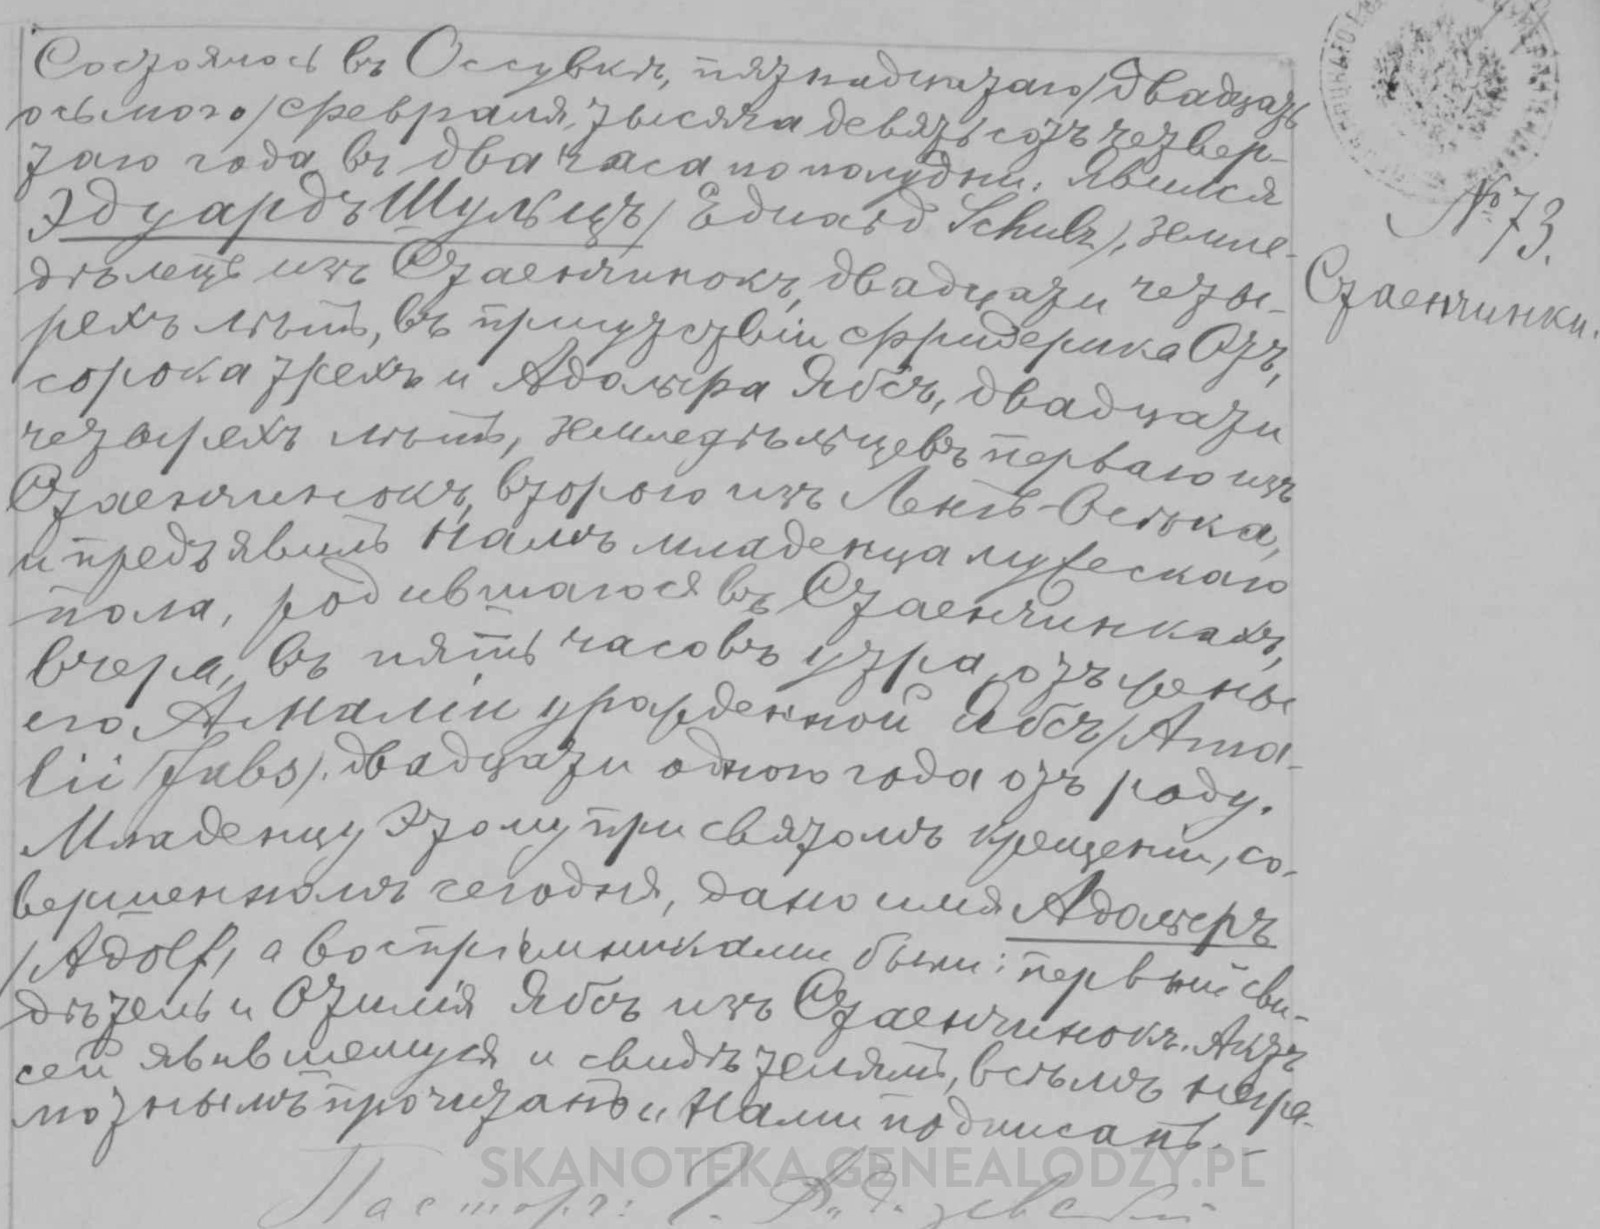 Состоялось въ Оссувкѣ, пятнадцатаго/двадцать
осьмого/февраля, тысяча девятьсотъ четвер-
таго года въ два часа пополудни. Явился
Эдуардъ Шульцъ/Eduard Schulz/, земле-
дѣлецъ изъ Стаенчинокъ, двадцати четы-
рехъ лѣтъ, въ присутствіи Фридерика Отъ,
сорока трехъ и Адольфа Ябсъ, двадцати
четырехъ лѣтъ, земледѣльцевъ перваго изъ
Стаенчинокъ, второго изъ Ленгъ-Осѣка,
и предъявилъ намъ младенца мужескаго
пола, родившагося въ Стаенчинкахъ,
вчера, въ пять часовъ утра, отъ жены
его Амаліи урожденной Ябсъ/Ama-
lii Jabs/. двадцати одного года отъ роду.
Младенцу этому при святомъ крещеніи, со-
вершенномъ сегодня, дано имя Адольфъ
/Adolf/ а воспріемниками были: первый сви-
дѣтель и Отилія Ябсъ изъ Стаенчинокъ. Актъ
сей явившемуся и свидѣтелямъ, всѣмъ негра-
мотнымъ прочитанъ и Нами подписанъ.-
Пасторъ:
№ 73.
Стаенчинки.
SKANOTEKA.GENEALODZY.PL